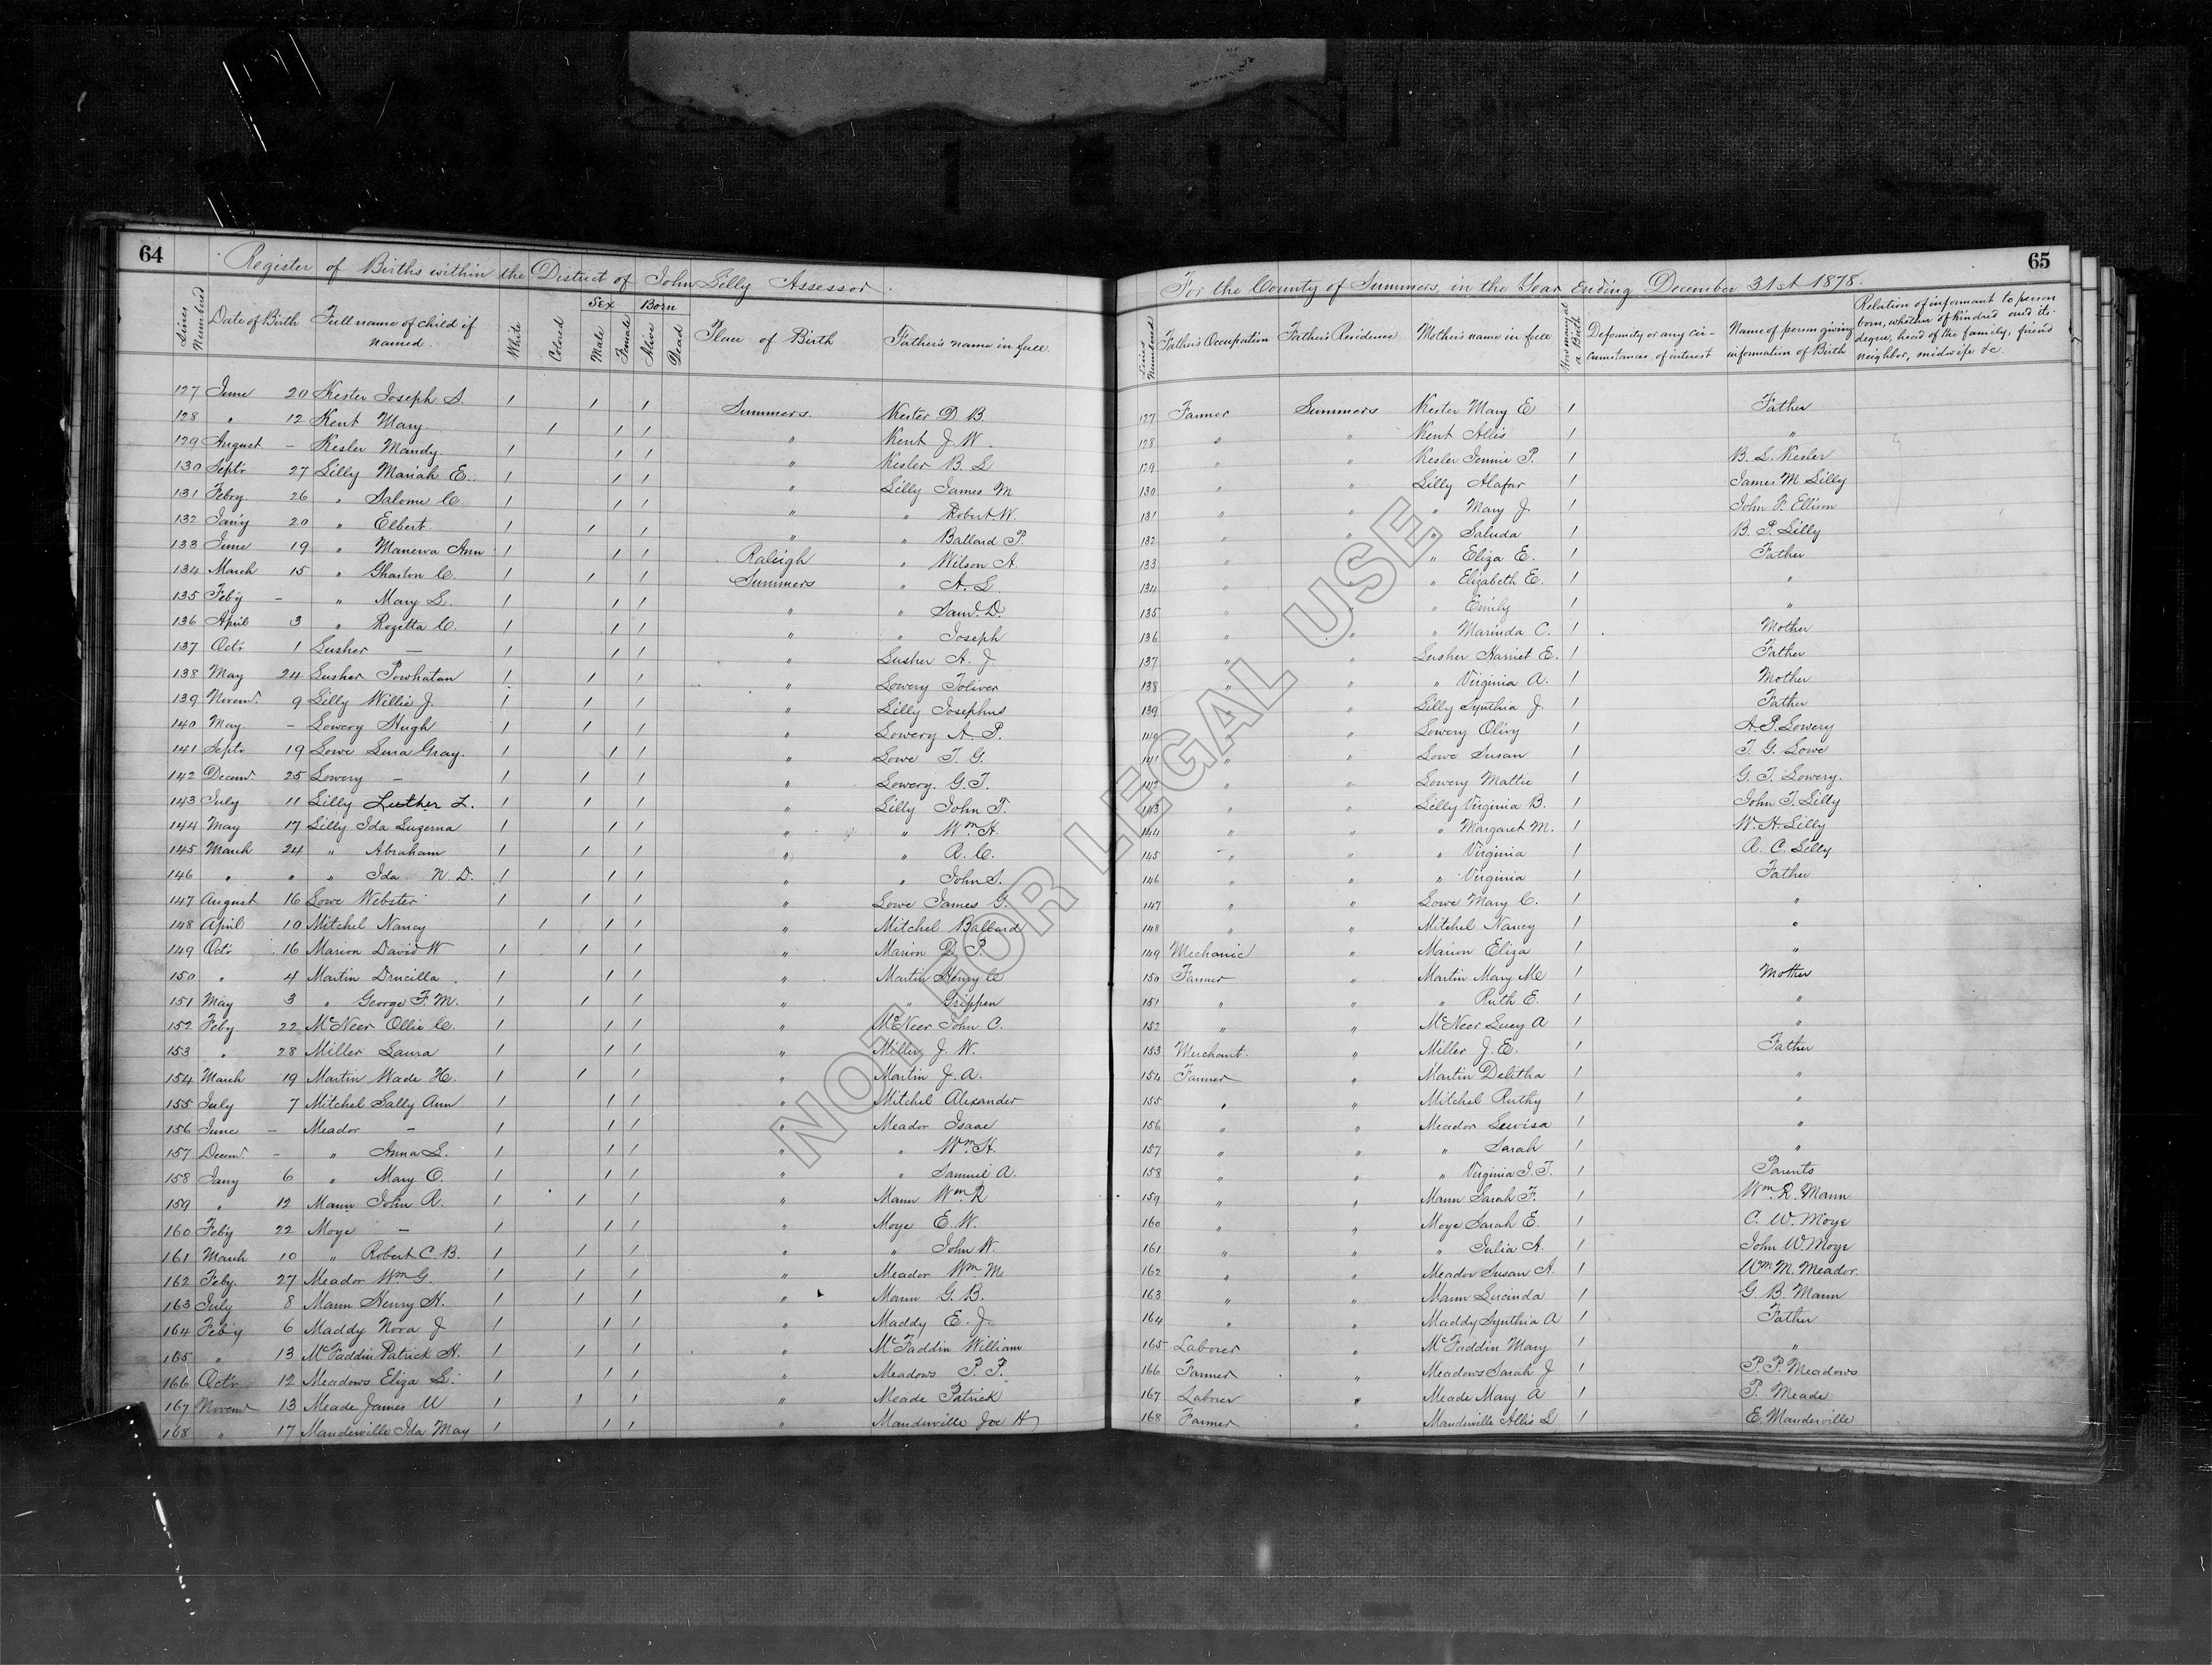 64
Register of Births within the District of John Lilly Assessor.
Lines Numbered
Date of Birth
Full name of child if named.
White
Colored
Sex
Male
Female
Born
Alive
Dead
Place of Birth
Father's name in full
127 June 20 Kester Joseph S. 1 1 1 Summers Kester D. B.
128 " 12 Kent Mary. 1 1 1 " Kent J. W.
129 August - Kesler Mandy. 1 1 1 " Kesler B. L
130 Septr 27 Lilly Mariah E. 1 1 1 " Lilly James M
131 Febry 26 " Salome C. 1 1 1 " " Robert W.
132 Jan'y 20 " Elbert. 1 1 1 " " Ballard P.
133 June 19 " Manerva Ann 1 1 1 Raleigh " Wilson A
134 March 15 " Gharton C. 1 1 1 Summers " A. L
135 Feb'y - " Mary L. 1 1 1 " " Saml. D.
136 April 3 " Rozetta C. 1 1 1 " " Joseph
137 Octr 1 Lusher - 1 1 1 " Lusher A. J.
138 May 24 Lusher Powhatan 1 1 1 " Lowery Toliver
139 Novem. 9 Lilly Willie J. 1 1 1 " Lilly Josephus
140 May - Lowery Hugh 1 1 1 " Lowery A. P.
141 Septr 19 Lowe Lura Gray. 1 1 1 " Lowe T. G.
142 Decem. 25 Lowery - 1 1 1 " Lowery. G. T.
143 July 11 Lilly Luther L. 1 1 1 " Lilly John T.
144 May 17 Lilly Ida Luzerna 1 1 1 " " Wm. H.
145 March 24 " Abraham 1 1 1 " " R. C.
146 " " " Ida N. D. 1 1 1 " " John S.
147 August 16 Lowe Webster 1 1 1 " Lowe James G.
148 April 10 Mitchel Nancy 1 1 1 " Mitchel Ballard
149 Octr 16 Marion David W 1 1 1 " Marion D. P.
150 " 4 Martin Drucilla 1 1 1 " Martin Henry C
151 May 3 " George F. M. 1 1 1 " " Grippen
152 Feby. 22 McNeer Ollie C. 1 1 1 " McNeer John C.
153 " 28 Miller Laura 1 1 1 " Miller J. W.
154 March 19 Martin Wade H. 1 1 1 " Martin J. A.
155 July 7 Mitchel Sally Ann 1 1 1 " Mitchel Alexander
156 June - Meador - 1 1 1 " Meador Isaac
157 Decem. - " Anna L. 1 1 1 " " Wm. H.
158 Jany 6 " Mary O. 1 1 1 " " Samuel A.
159 " 12 Mann John R. 1 1 1 " Mann Wm. R
160 Feb'y 22 Moye - 1 1 1 " Moye E. W.
161 March 10 " Robert C. B. 1 1 1 " " John W.
162 Feby. 27 Meador Wm G. 1 1 1 " Meador Wm. M.
163 July 8 Mann Henry H. 1 1 1 " Mann G. B.
164 Feb'y 6 Maddy Nora J 1 1 1 " Maddy E. J.
165 " 13 McFaddin Patrick H. 1 1 1 " McFaddin William
166 Octr 12 Meadows Eliza L. 1 1 1 " Meadows P. P.
167 Novem. 13 Meade James W 1 1 1 " Meade Patrick
168 " 17 Manderville Ida May 1 1 1 " Manderville Joe H
65
For the County of Summers, in the Year Ending December 31st 1878.
Lines Numbered
Father's Occupation
Father's Residence
Mother's name in full
How many at a Birth
Deformity or any circumstances of interest
Name of person giving information of Birth
Relation of informant to person born, whether of kindred and its degree, head of the family, friend neighbor, midwife &c.
127 Farmer Summers Kester Mary E 1 Father
128 " " Kent Allis 1 "
129 " " Kesler Jennie P. 1 B. L. Kesler
130 " " Lilly Alafar 1 James M Lilly
131 " " " Mary J. 1 John F. Ellison
132 " " " Saluda 1 B. P. Lilly
133 " " " Eliza E. 1 Father
134 " " " Elizabeth E. 1 "
135 " " " Emily 1 "
136 " " " Marinda C. 1 Mother
137 " " Lusher Harriet E. 1 Father
138 " " " Virginia A. 1 Mother
139 " " Lilly Synthia J. 1 Father
140 " " Lowery Olivy 1 A. P. Lowery
141 " " Lowe Susan 1 T. G. Lowe
142 " " Lowery Mattie 1 G. T. Lowery.
143 " " Lilly Virginia B. 1 John T. Lilly
144 " " " Margaret M. 1 W. H. Lilly
145 " " " Virginia 1 R. C. Lilly
146 " " " Virginia 1 Father
147 " " Lowe Mary C. 1 "
148 " " Mitchel Nancy 1 "
149 Mechanic " Marion Eliza 1 "
150 Farmer " Martin Mary M. 1 Mother
151 " " " Ruth E. 1 "
152 " " McNeer Lucy A 1 "
153 Merchant. " Miller J. E. 1 Father
154 Farmer " Martin Delitha 1 "
155 " " Mitchel Ruthy 1 "
156 " " Meador Lewisa 1 "
157 " " " Sarah 1 "
158 " " " Virginia I. T. 1 Parents
159 " " Mann Sarah F. 1 Wm. R. Mann
160 " " Moye Sarah E. 1 C. W. Moye
161 " " " Julia A. 1 John W. Moye
162 " " Meador Susan A. 1 Wm M. Meador.
163 " " Mann Lucinda 1 G. B. Mann
164 " " Maddy Synthia A 1 Father
165 Laborer " McFaddin Mary 1 "
166 Farmer " Meadows Sarah J 1 P. P. Meadows
167 Laborer " Meade Mary A 1 P. Meade
168 Farmer " Manderville Allis L 1 E. Manderville
NOT FOR LEGAL USE